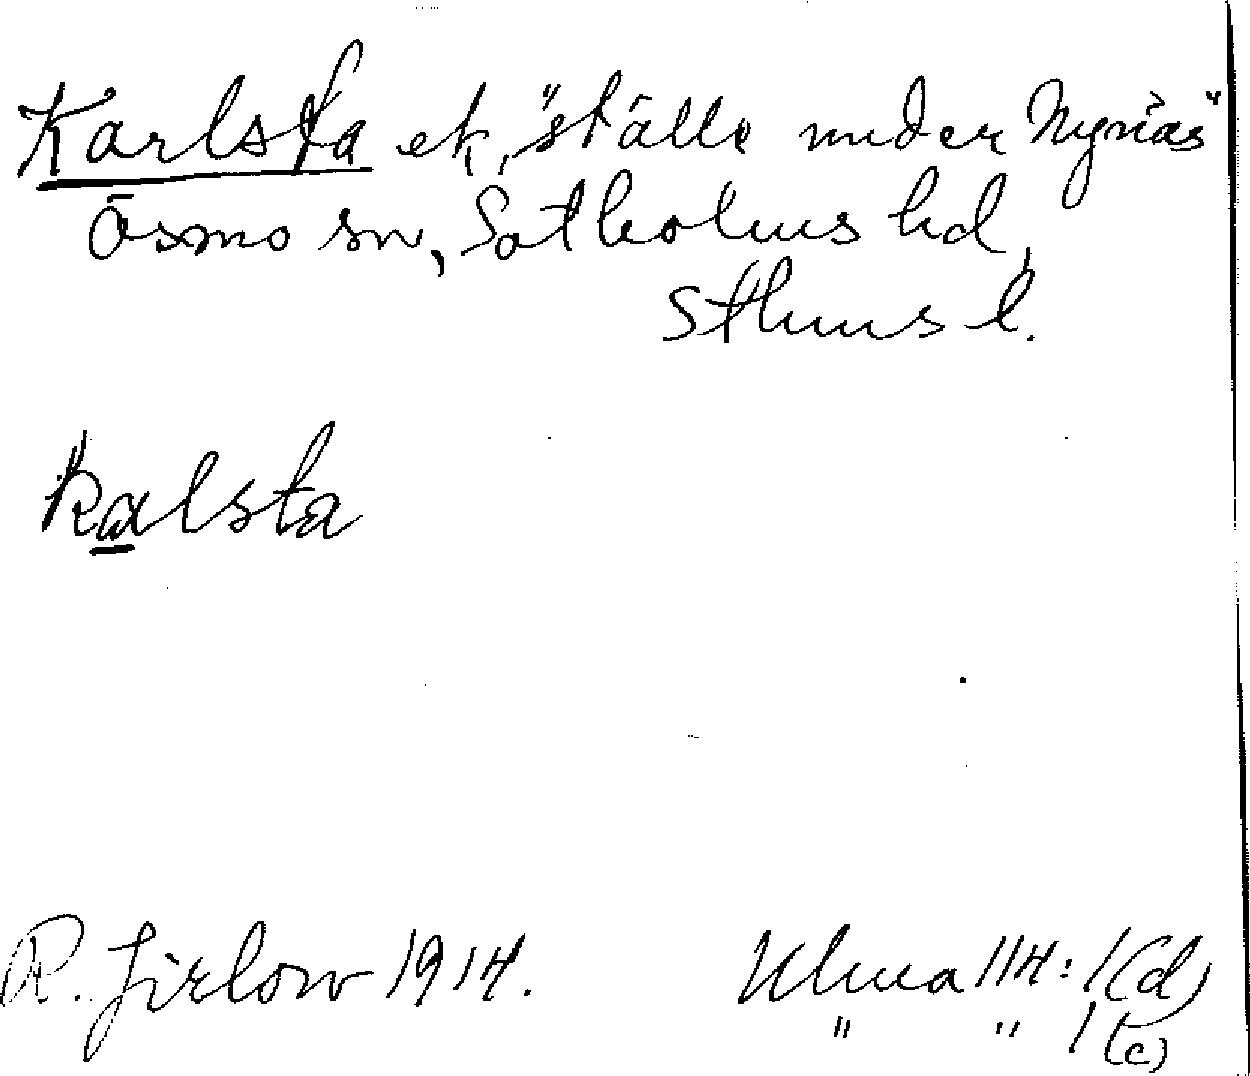 Karlsta ek, "ställe under Nynäs"
Ösmo sn, Sotholms hd,
Sthms l.
Kalsta
R. Jirlow 1914.
Ulma 114:1(d)
" " 1(c)